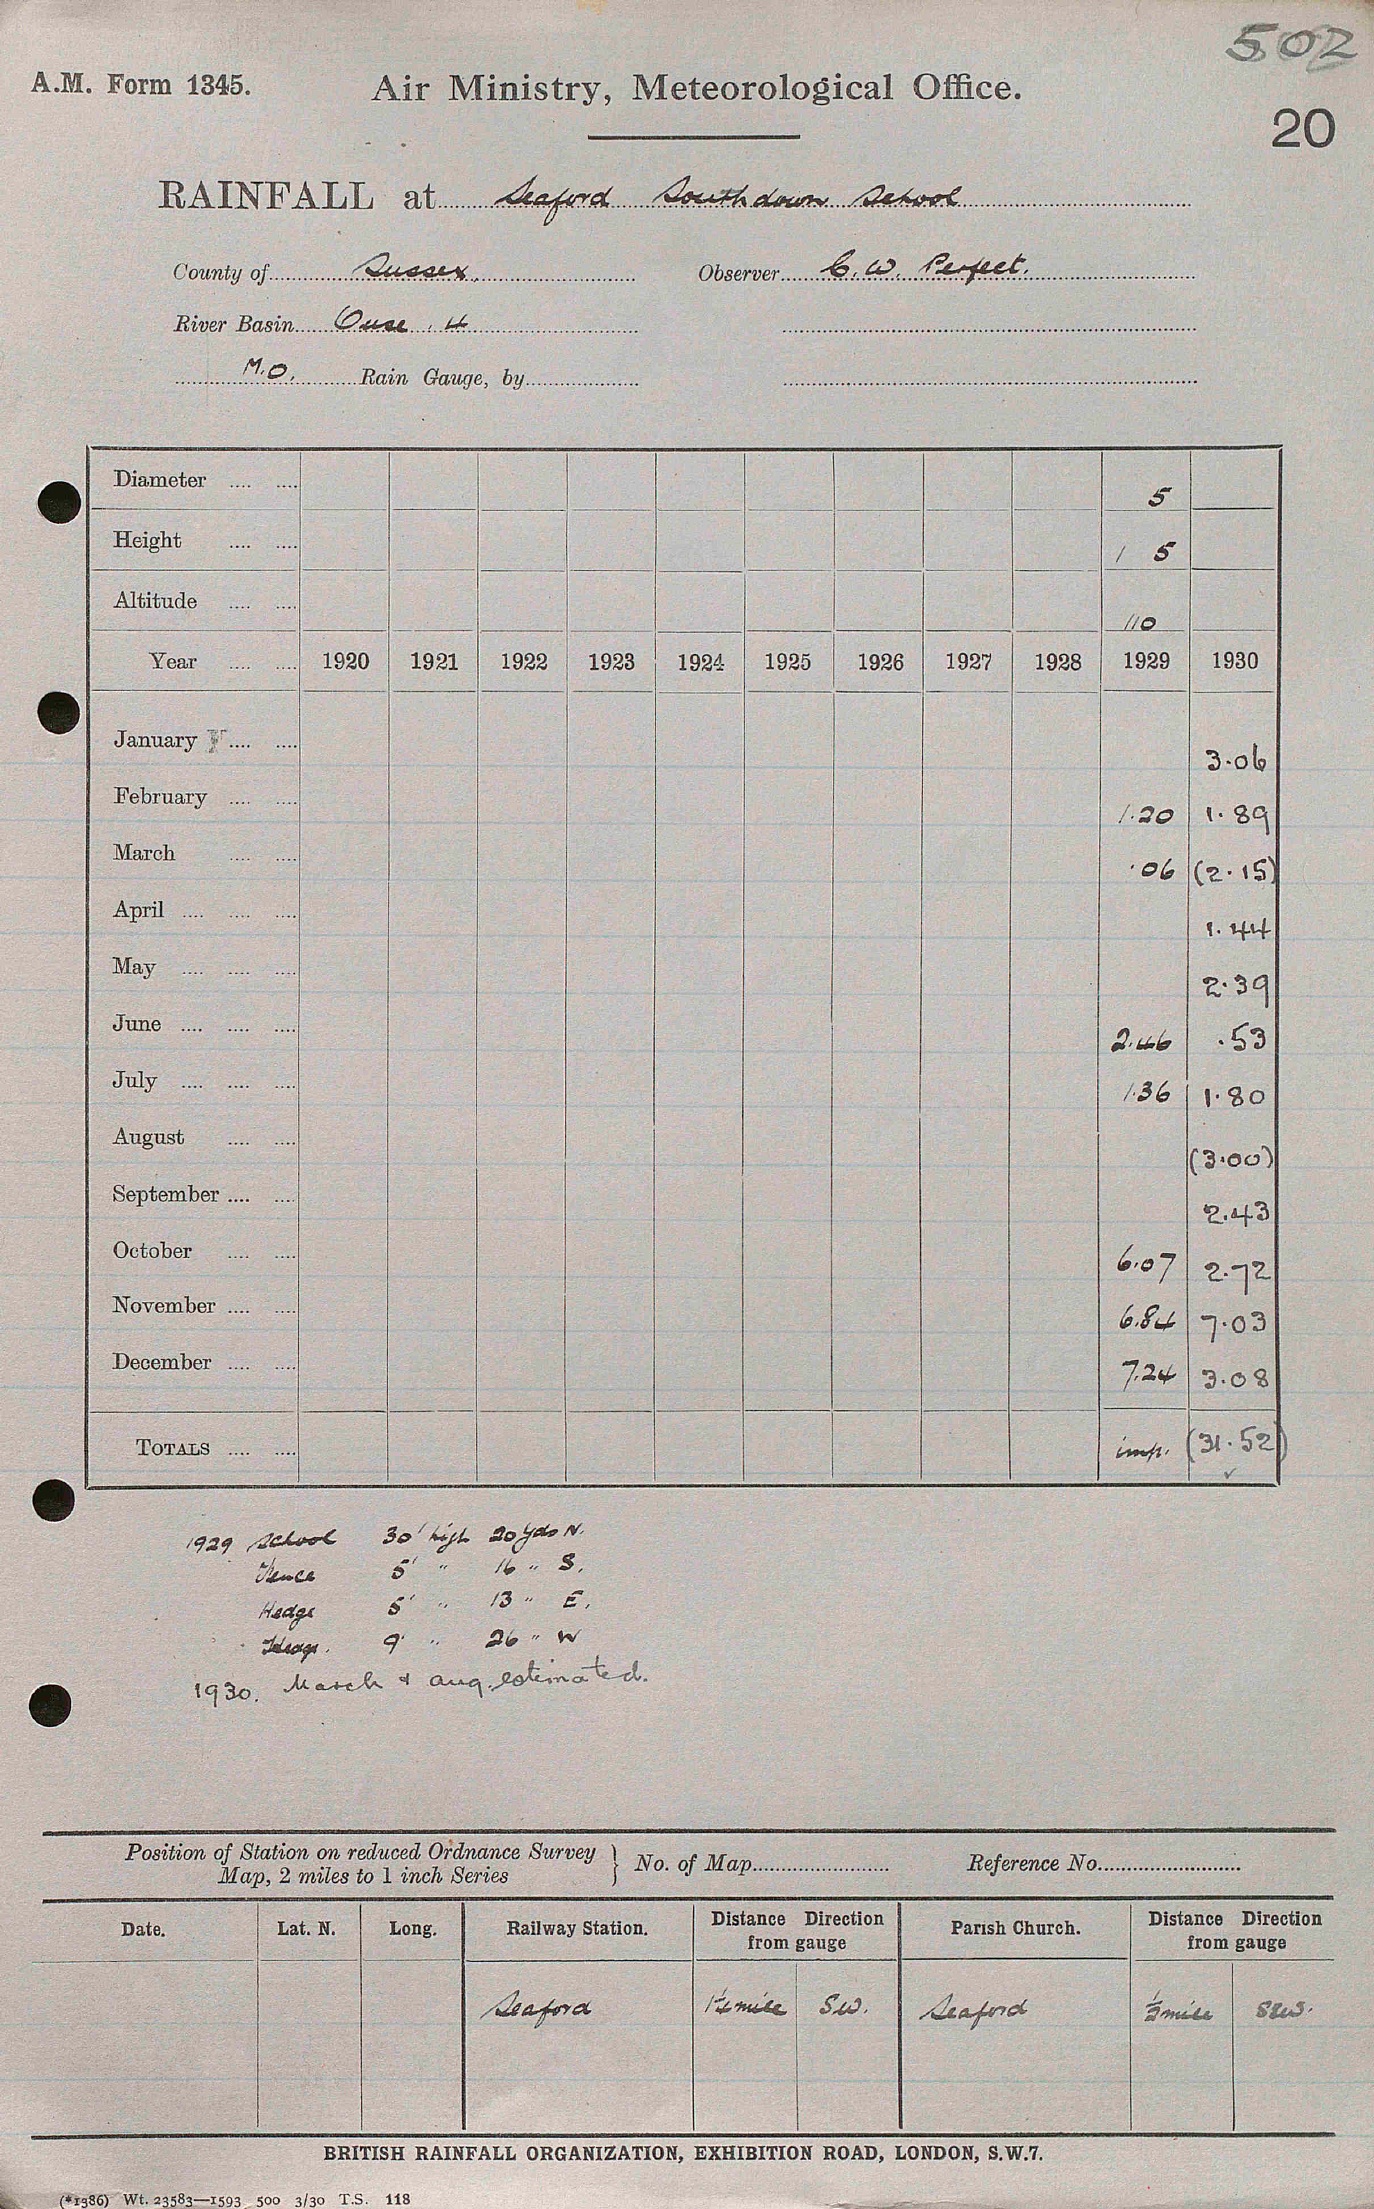 502
A.M. Form 1345. Air Ministry, Meteorological Office.
20
RAINFALL at Seaford Southdown School
County of Sussex. Observer C. W. Perfect.
River Basin Ouse . 4
M.O. Rain Gauge, by
Diameter .... .... 5
Height .... .... 1 5
Altitude .... .... 110
Year .... .... 1920 1921 1922 1923 1924 1925 1926 1927 1928 1929 1930
January .... .... 3.06
February .... .... 1.20 1.89
March .... .... .06 (2.15)
April .... .... .... 1.44
May .... .... .... 2.39
June .... .... .... 2.46 .53
July .... .... .... 1.36 1.80
August .... .... (3.00)
September .... .... 2.43
October .... .... 6.07 2.72
November .... .... 6.84 7.03
December .... .... 7.24 3.08
TOTALS .... .... imp. (31.52)
✓
1929 School 30' high 20 yds N.
Fence 5' " 16 " S.
Hedge 5' " 13 " E.
9' " 26 " W
1930. March & Aug. estimated.
Position of Station on reduced Ordnance Survey
Map, 2 miles to 1 inch Series } No. of Map Reference No.
Date. Lat. N. Long. Railway Station. Distance Direction from gauge Parish Church. Distance Direction from gauge
Seaford mile SW. Seaford ½ mile SSW.
BRITISH RAINFALL ORGANIZATION, EXHIBITION ROAD, LONDON, S.W.7.
(*1386) Wt. 23583—1593 500 3/30 T.S. 118